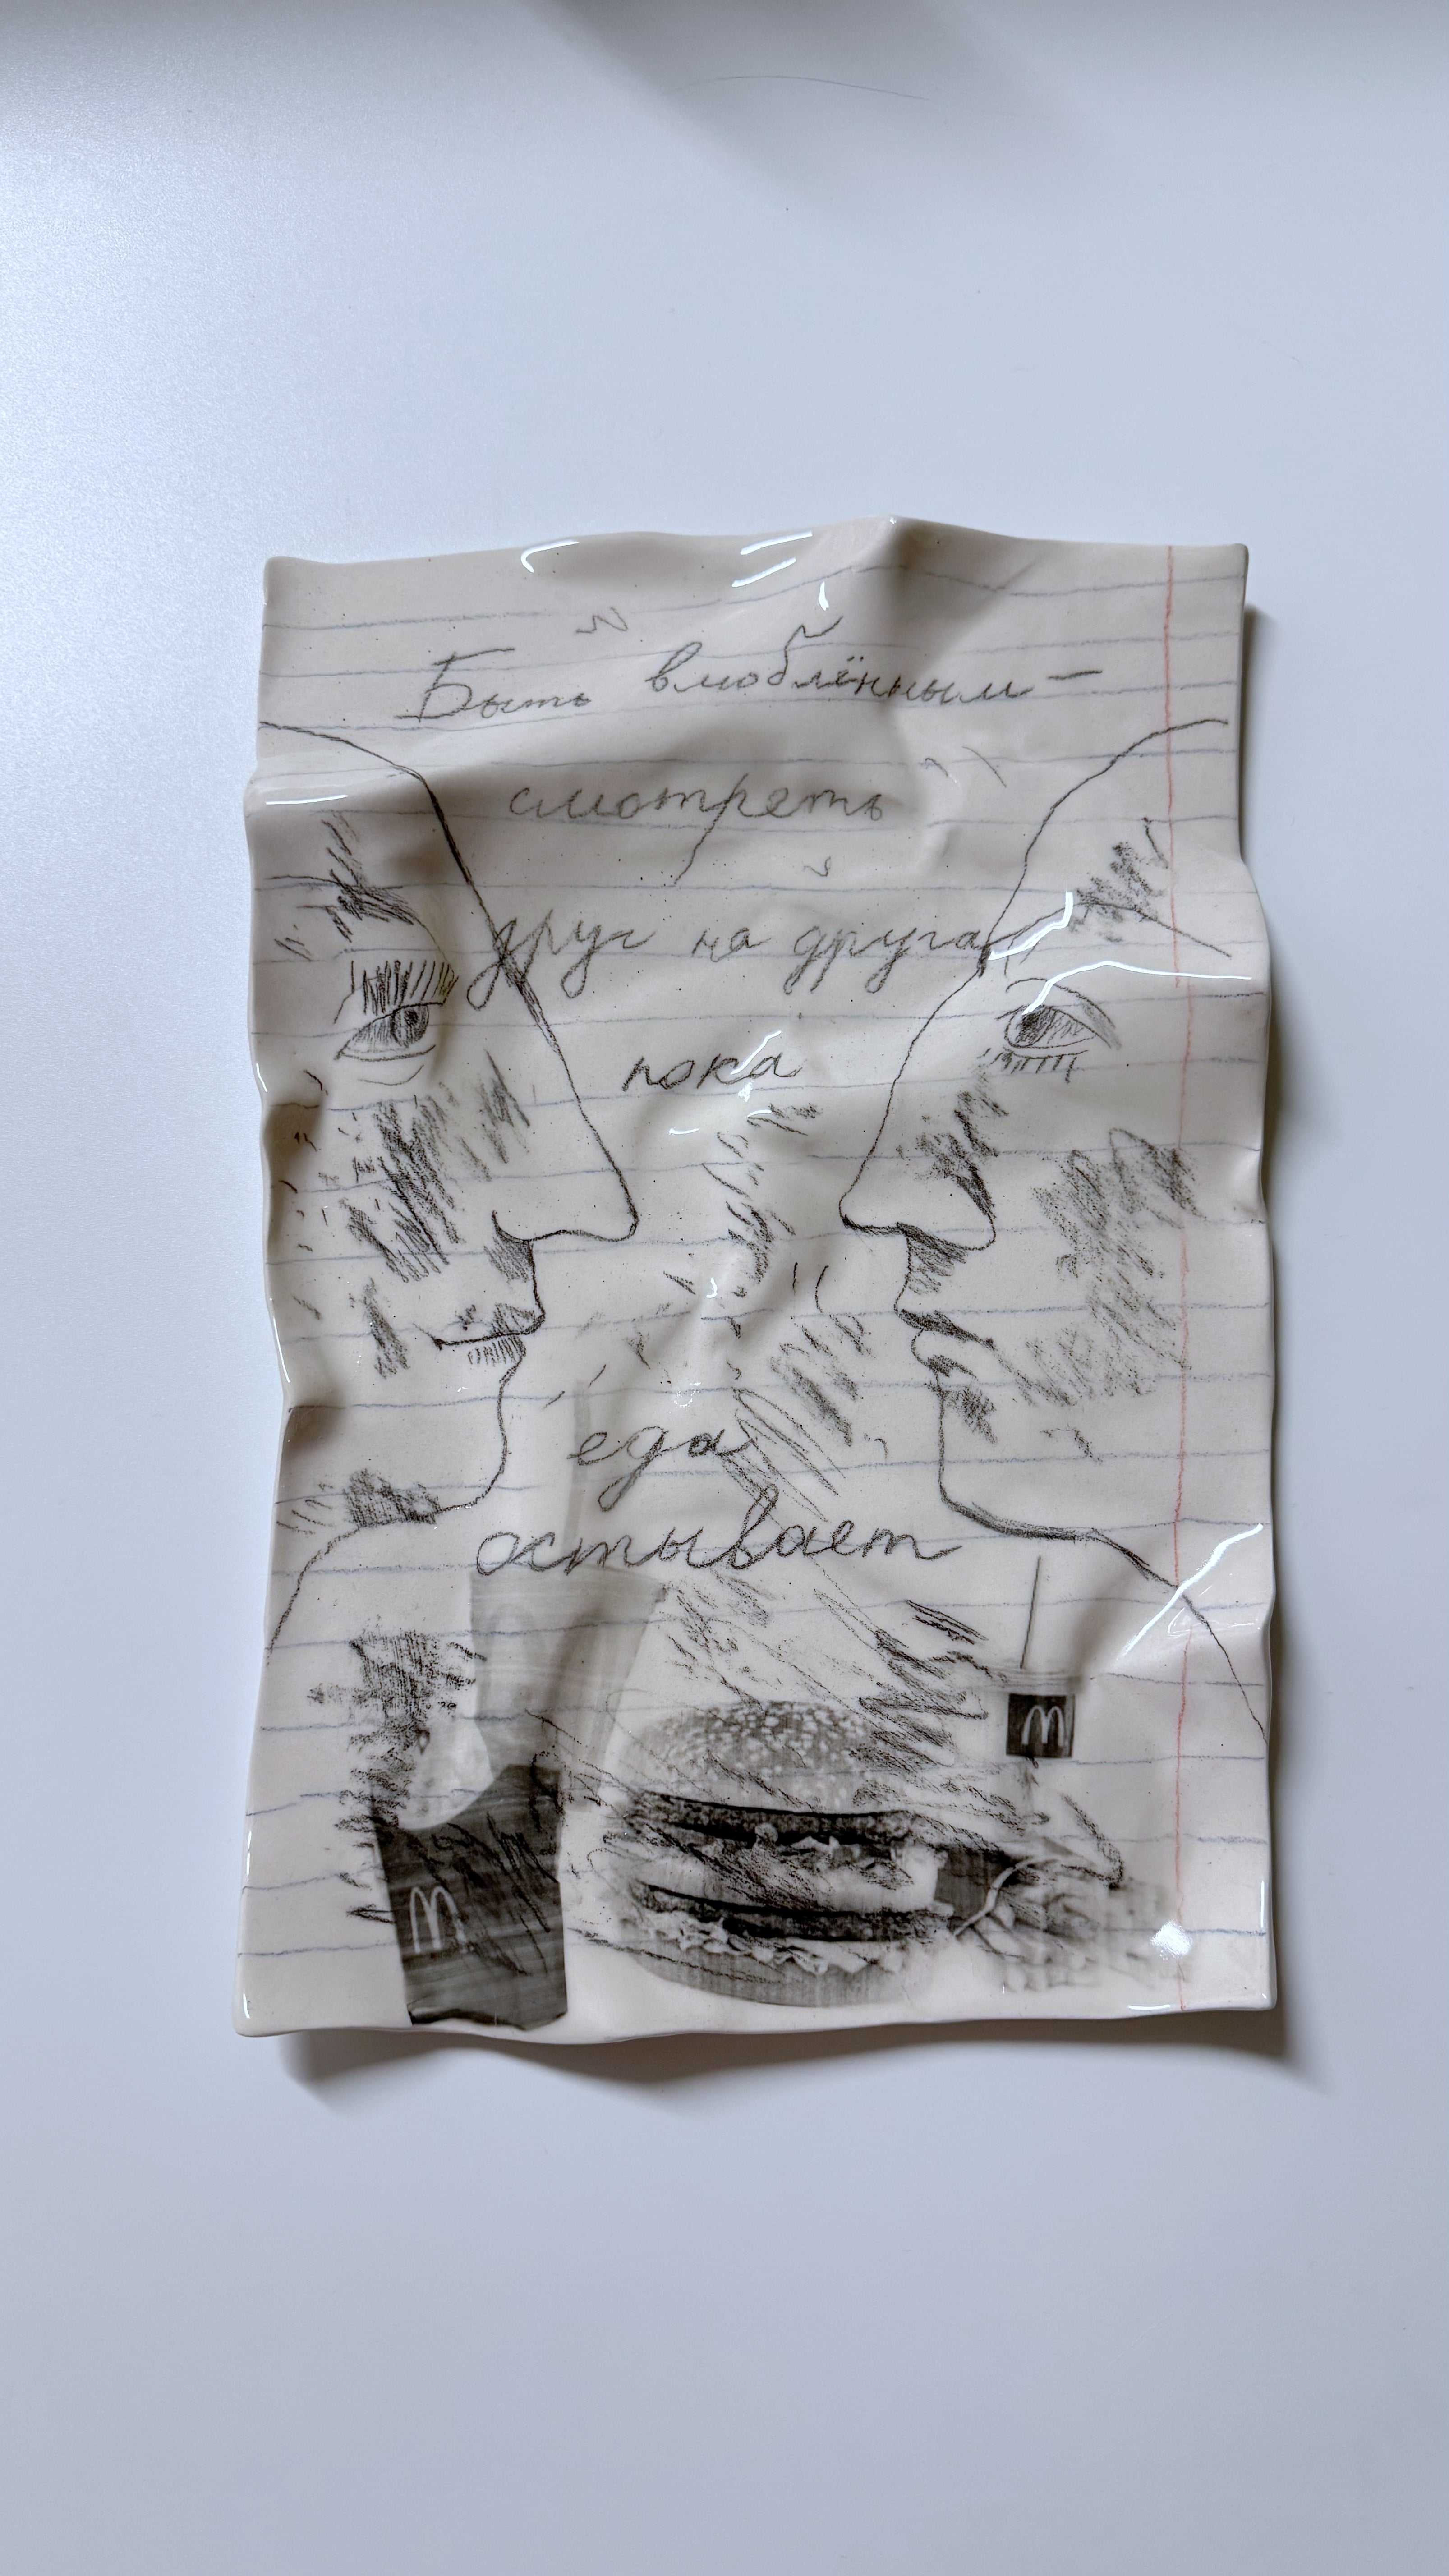 Быть влюблённым —
смотреть
друг на друга
пока
еда
остывает
M
M